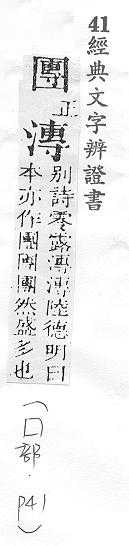 41 經典文字辨證書
團正
漙別詩零露漙漙陸德明曰
本亦作團團團然盛多也
（口部．P41）